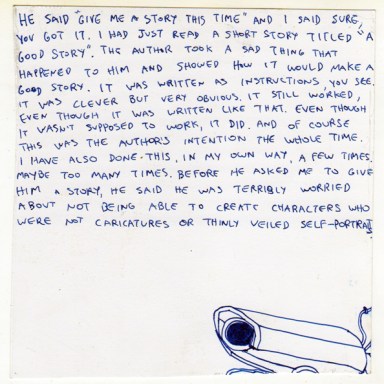 HE SAID "GIVE ME A STORY THIS TIME" AND I SAID SURE,
YOU GOT IT. I HAD JUST READ A SHORT STORY TITLED "A
GOOD STORY". THE AUTHOR TOOK A SAD THING THAT
HAPPENED TO HIM AND SHOWED HOW IT WOULD MAKE A
GOOD STORY. IT WAS WRITTEN AS INSTRUCTIONS, YOU SEE.
IT WAS CLEVER BUT VERY OBVIOUS. IT STILL WORKED,
EVEN THOUGH IT WAS WRITTEN LIKE THAT. EVEN THOUGH
IT WASN'T SUPPOSED TO WORK, IT DID. AND OF COURSE
THIS WAS THE AUTHOR'S INTENTION THE WHOLE TIME.
I HAVE ALSO DONE THIS, IN MY OWN WAY, A FEW TIMES.
MAYBE TOO MANY TIMES. BEFORE HE ASKED ME TO GIVE
HIM A STORY, HE SAID HE WAS TERRIBLY WORRIED
ABOUT NOT BEING ABLE TO CREATE CHARACTERS WHO
WERE NOT CARICATURES OR THINLY VEILED SELF-PORTRAIT